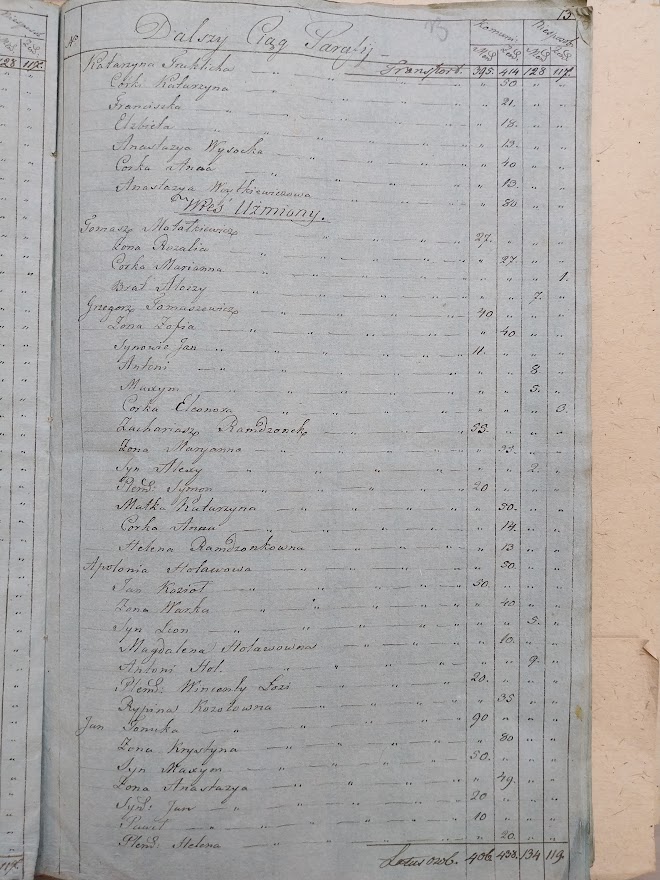 13.
Dalszy Ciąg Parafij
No
Komuni. Niespos.
Męs. Żeń. Męs. Żeń.
Transport. 395. 414 128 117.
Katarzyna
Cork. Katarzyna " 30 " "
Franciszka " 21. " "
Elżbieta " 18. " "
Anastazya Wysocka " 13. " "
Corka Anna " 40 " "
Anastazya Woytkiewiczowa " 13. " "
" 80 " "
Wieś Uźmiany.
Tomasz Małatkiewicz 27. " " "
Żona Rozalia " 27 " "
Corka Marianna " " " 1.
Brat Alexy " " 7. "
Grzegorz Tomaszewicz 40 " " "
Żona Zofia " 40 " "
Synowie Jan 11. " " "
Antoni " " 8. "
Maxym " " 5. "
Corka Eleonora " " " 3.
Zachariasz Ramdzonek 35. " " "
Żona Maryanna " 35. " "
Syn Alexy " " 2. "
Plem: Symon 20 " " "
Matka Katarzyna " 50. " "
Corka Anna " 14. " "
Helena Ramdzonkowna " 13 " "
Apolonia " 50. " "
Jan Kozioł 50. " " "
Żona Warka " 40 " "
Syn Leon " " 5. "
Magdalena " 10. " "
Antoni " " 9. "
Plem: Wincenty Łozi 20. " " "
Rypina Kozołowna " 35 " "
Jan 90 " " "
Żona Krystyna " 80 " "
Syn Maxym 50. " " "
Żona Anastazya " 49. " "
Syn: Jan 20 " " "
Paweł 10 " " "
Plem: Helena " 20. " "
Latus ozob. 406. 438. 134 119.
128 117.
117.